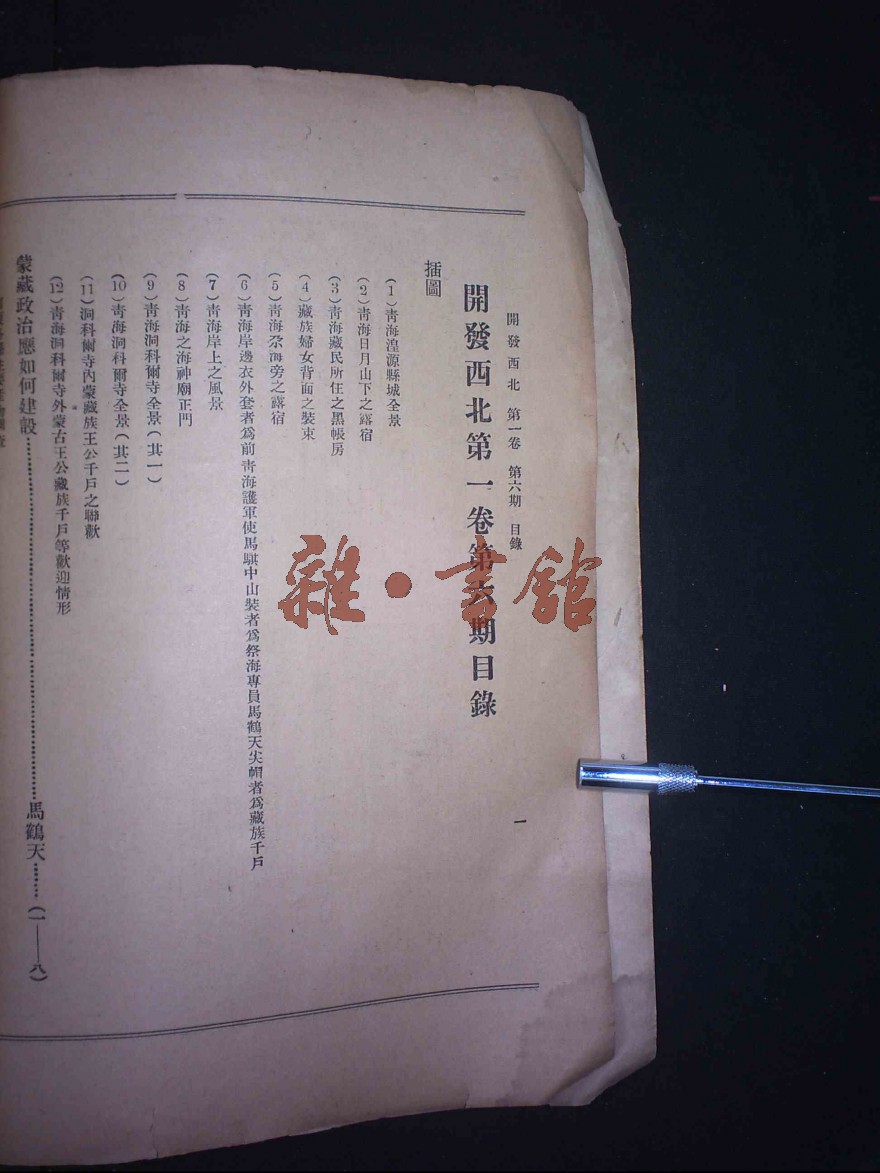 開發西北 第一卷 第六期 目錄
一
開發西北第一卷第六期目錄
插圖
(1)靑海湟源縣城全景
(2)靑海日月山下之露宿
(3)靑海藏民所住之黑帳房
(4)藏族婦女背面之裝束
(5)靑海尕海旁之露宿
(6)靑海岸邊衣外套者爲前靑海護軍使馬騏中山裝者爲祭海專員馬鶴天尖帽者爲藏族千戶
(7)靑海岸上之風景
(8)靑海之海神廟正門
(9)靑海洞科爾寺全景(其一)
(10)靑海洞科爾寺全景(其二)
(11)洞科爾寺內蒙藏族王公千戶之聯歡
(12)靑海洞科爾寺外蒙古王公藏族千戶等歡迎情形
蒙藏政治應如何建設……馬鶴天……(一——八)
雜·書館